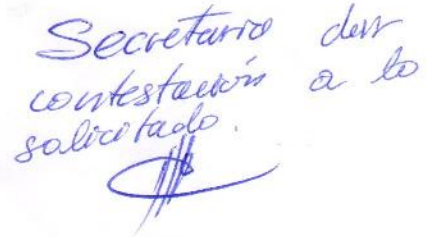 Secretario dar
contestación a lo
solicitado.